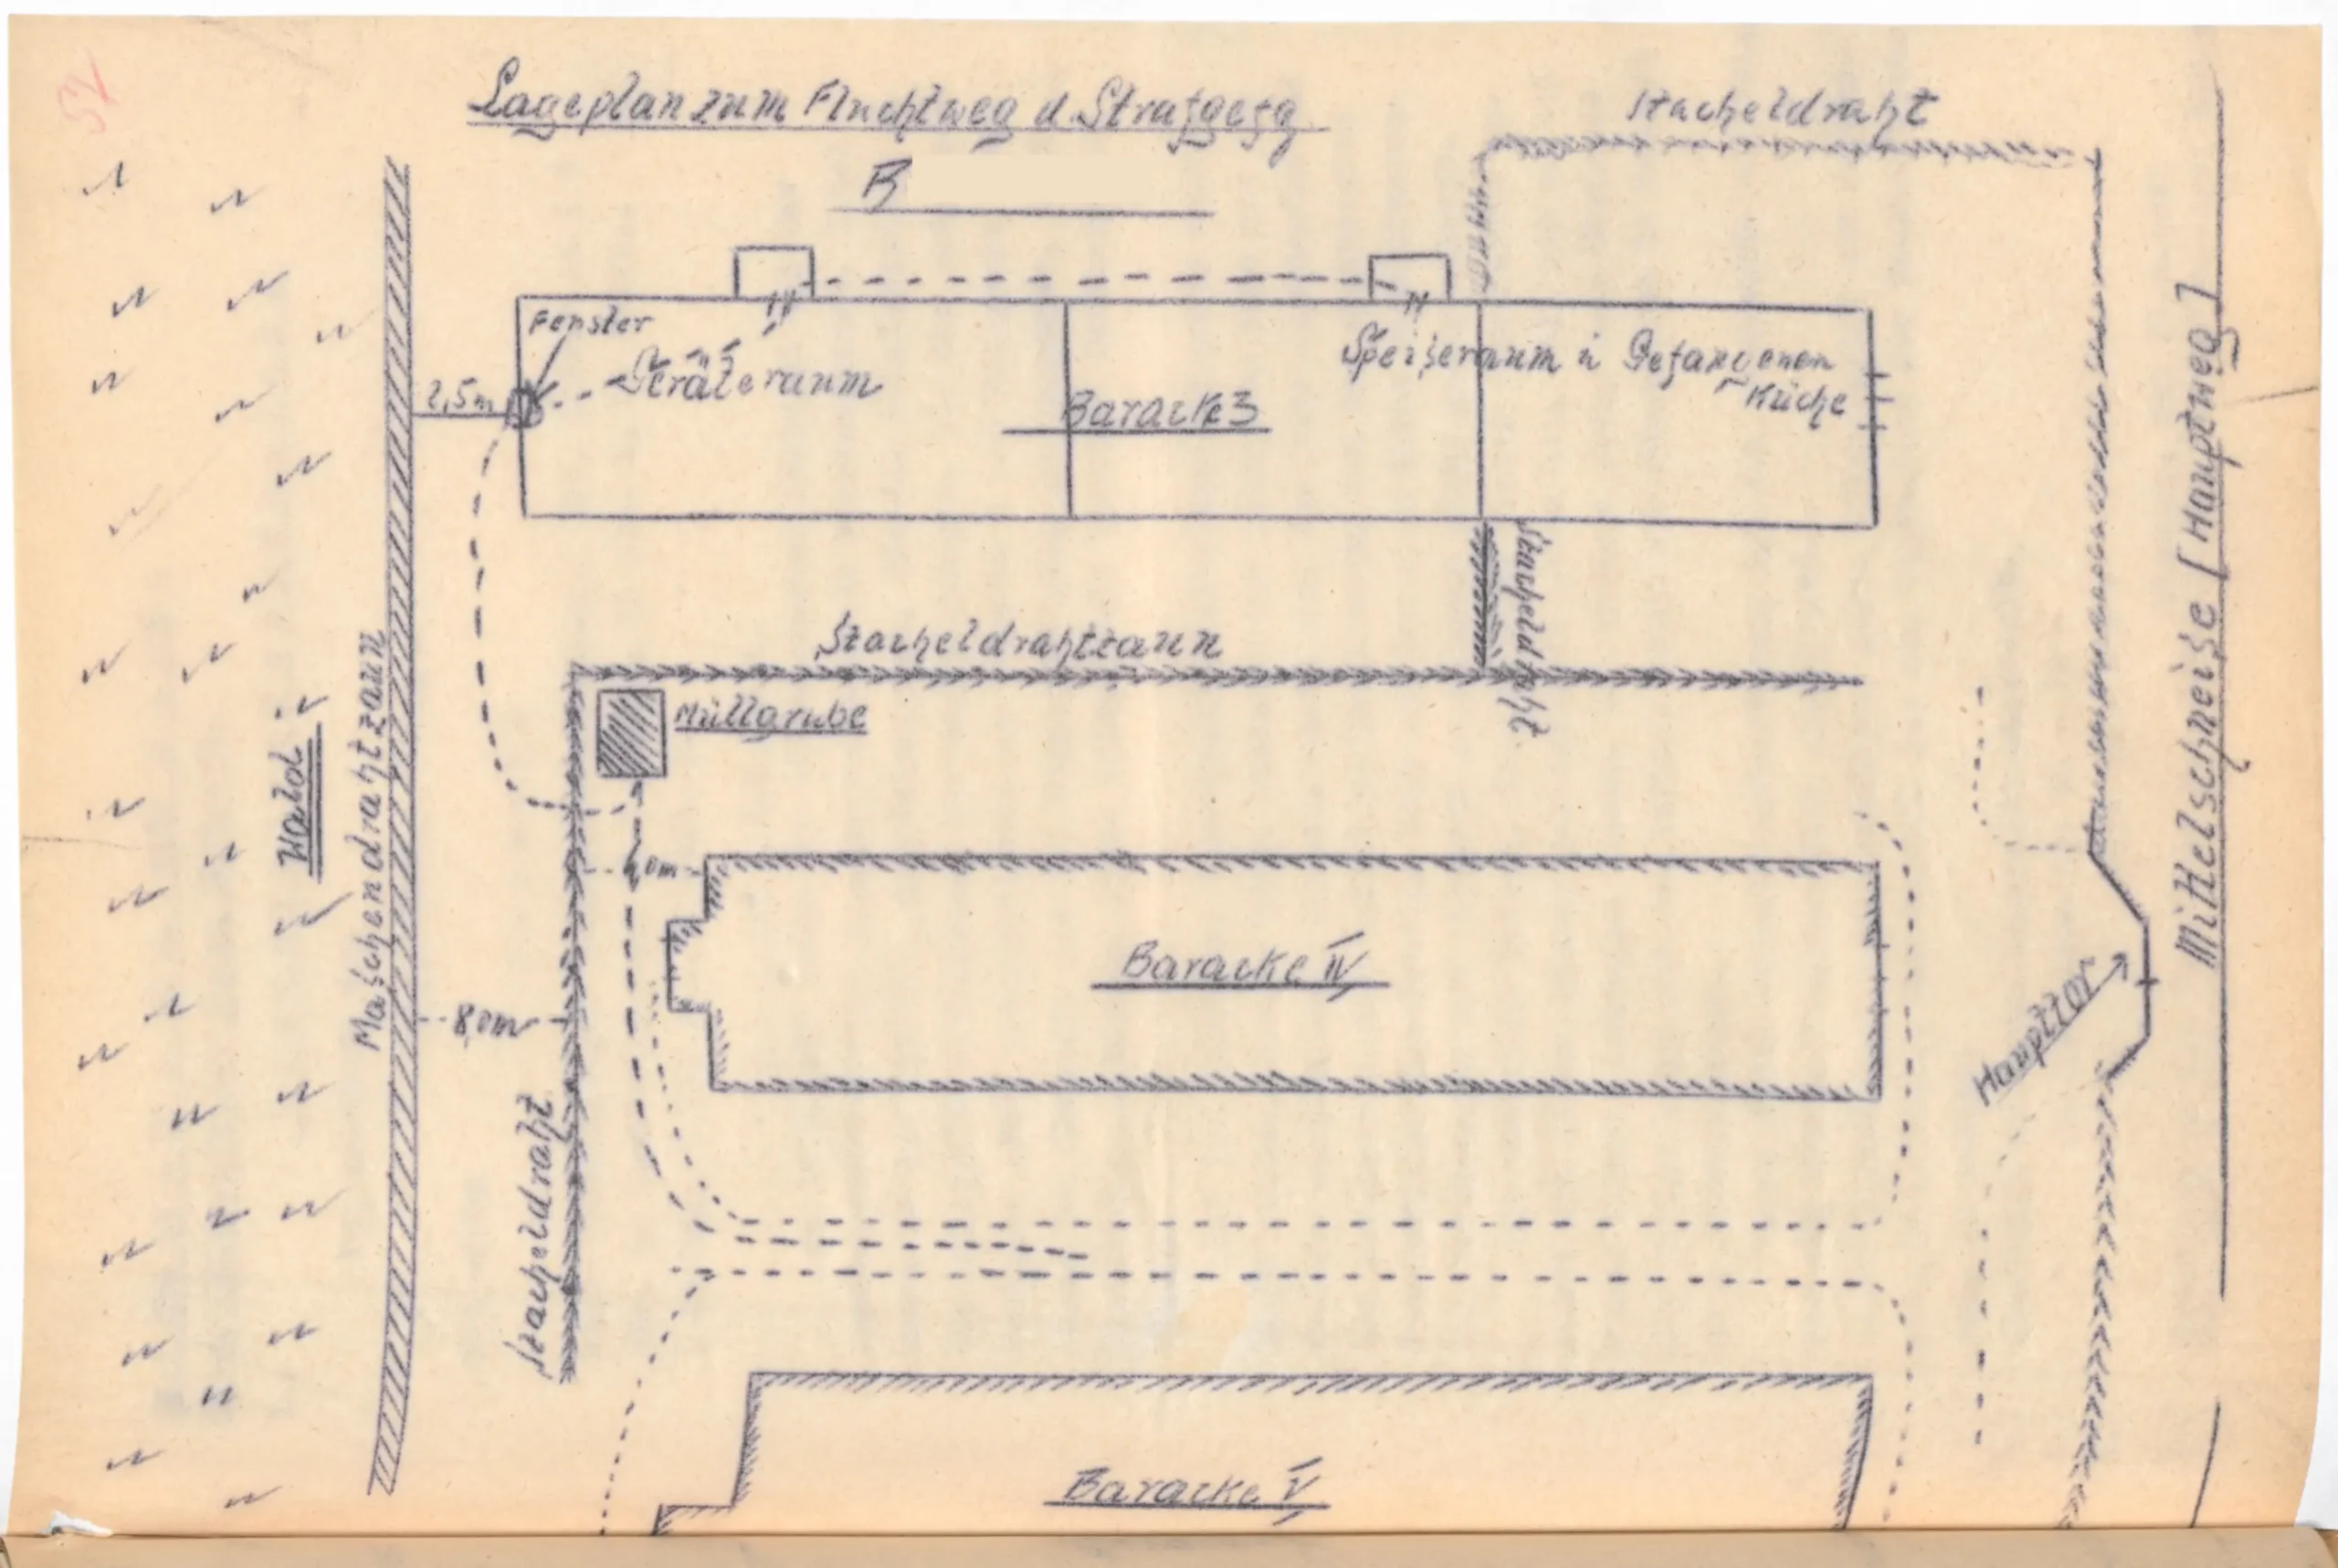 52
Lageplan zum Fluchtweg d. Strafgefg
B
Stacheldraht
Fenster
Geräteraum
2,5m
Baracke 3
Speiseraum u Gefangenen
Küche
Stacheldraht
Stacheldrahtzaun
Müllgrube
Wald
Maschendrahtzaun
Mittelschneise [Hauptweg]
Baracke IV
8,0m
Haupttor
Stacheldraht
Baracke V